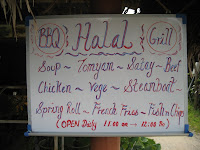 BBQ Halal Grill
Soup ~ Tomyam ~ Satay ~ Beef
Chicken ~ Vege ~ Steamboat
Spring Roll ~ French Fries ~ Fish n Chip
(OPEN Daily 11.00 am → 12.00